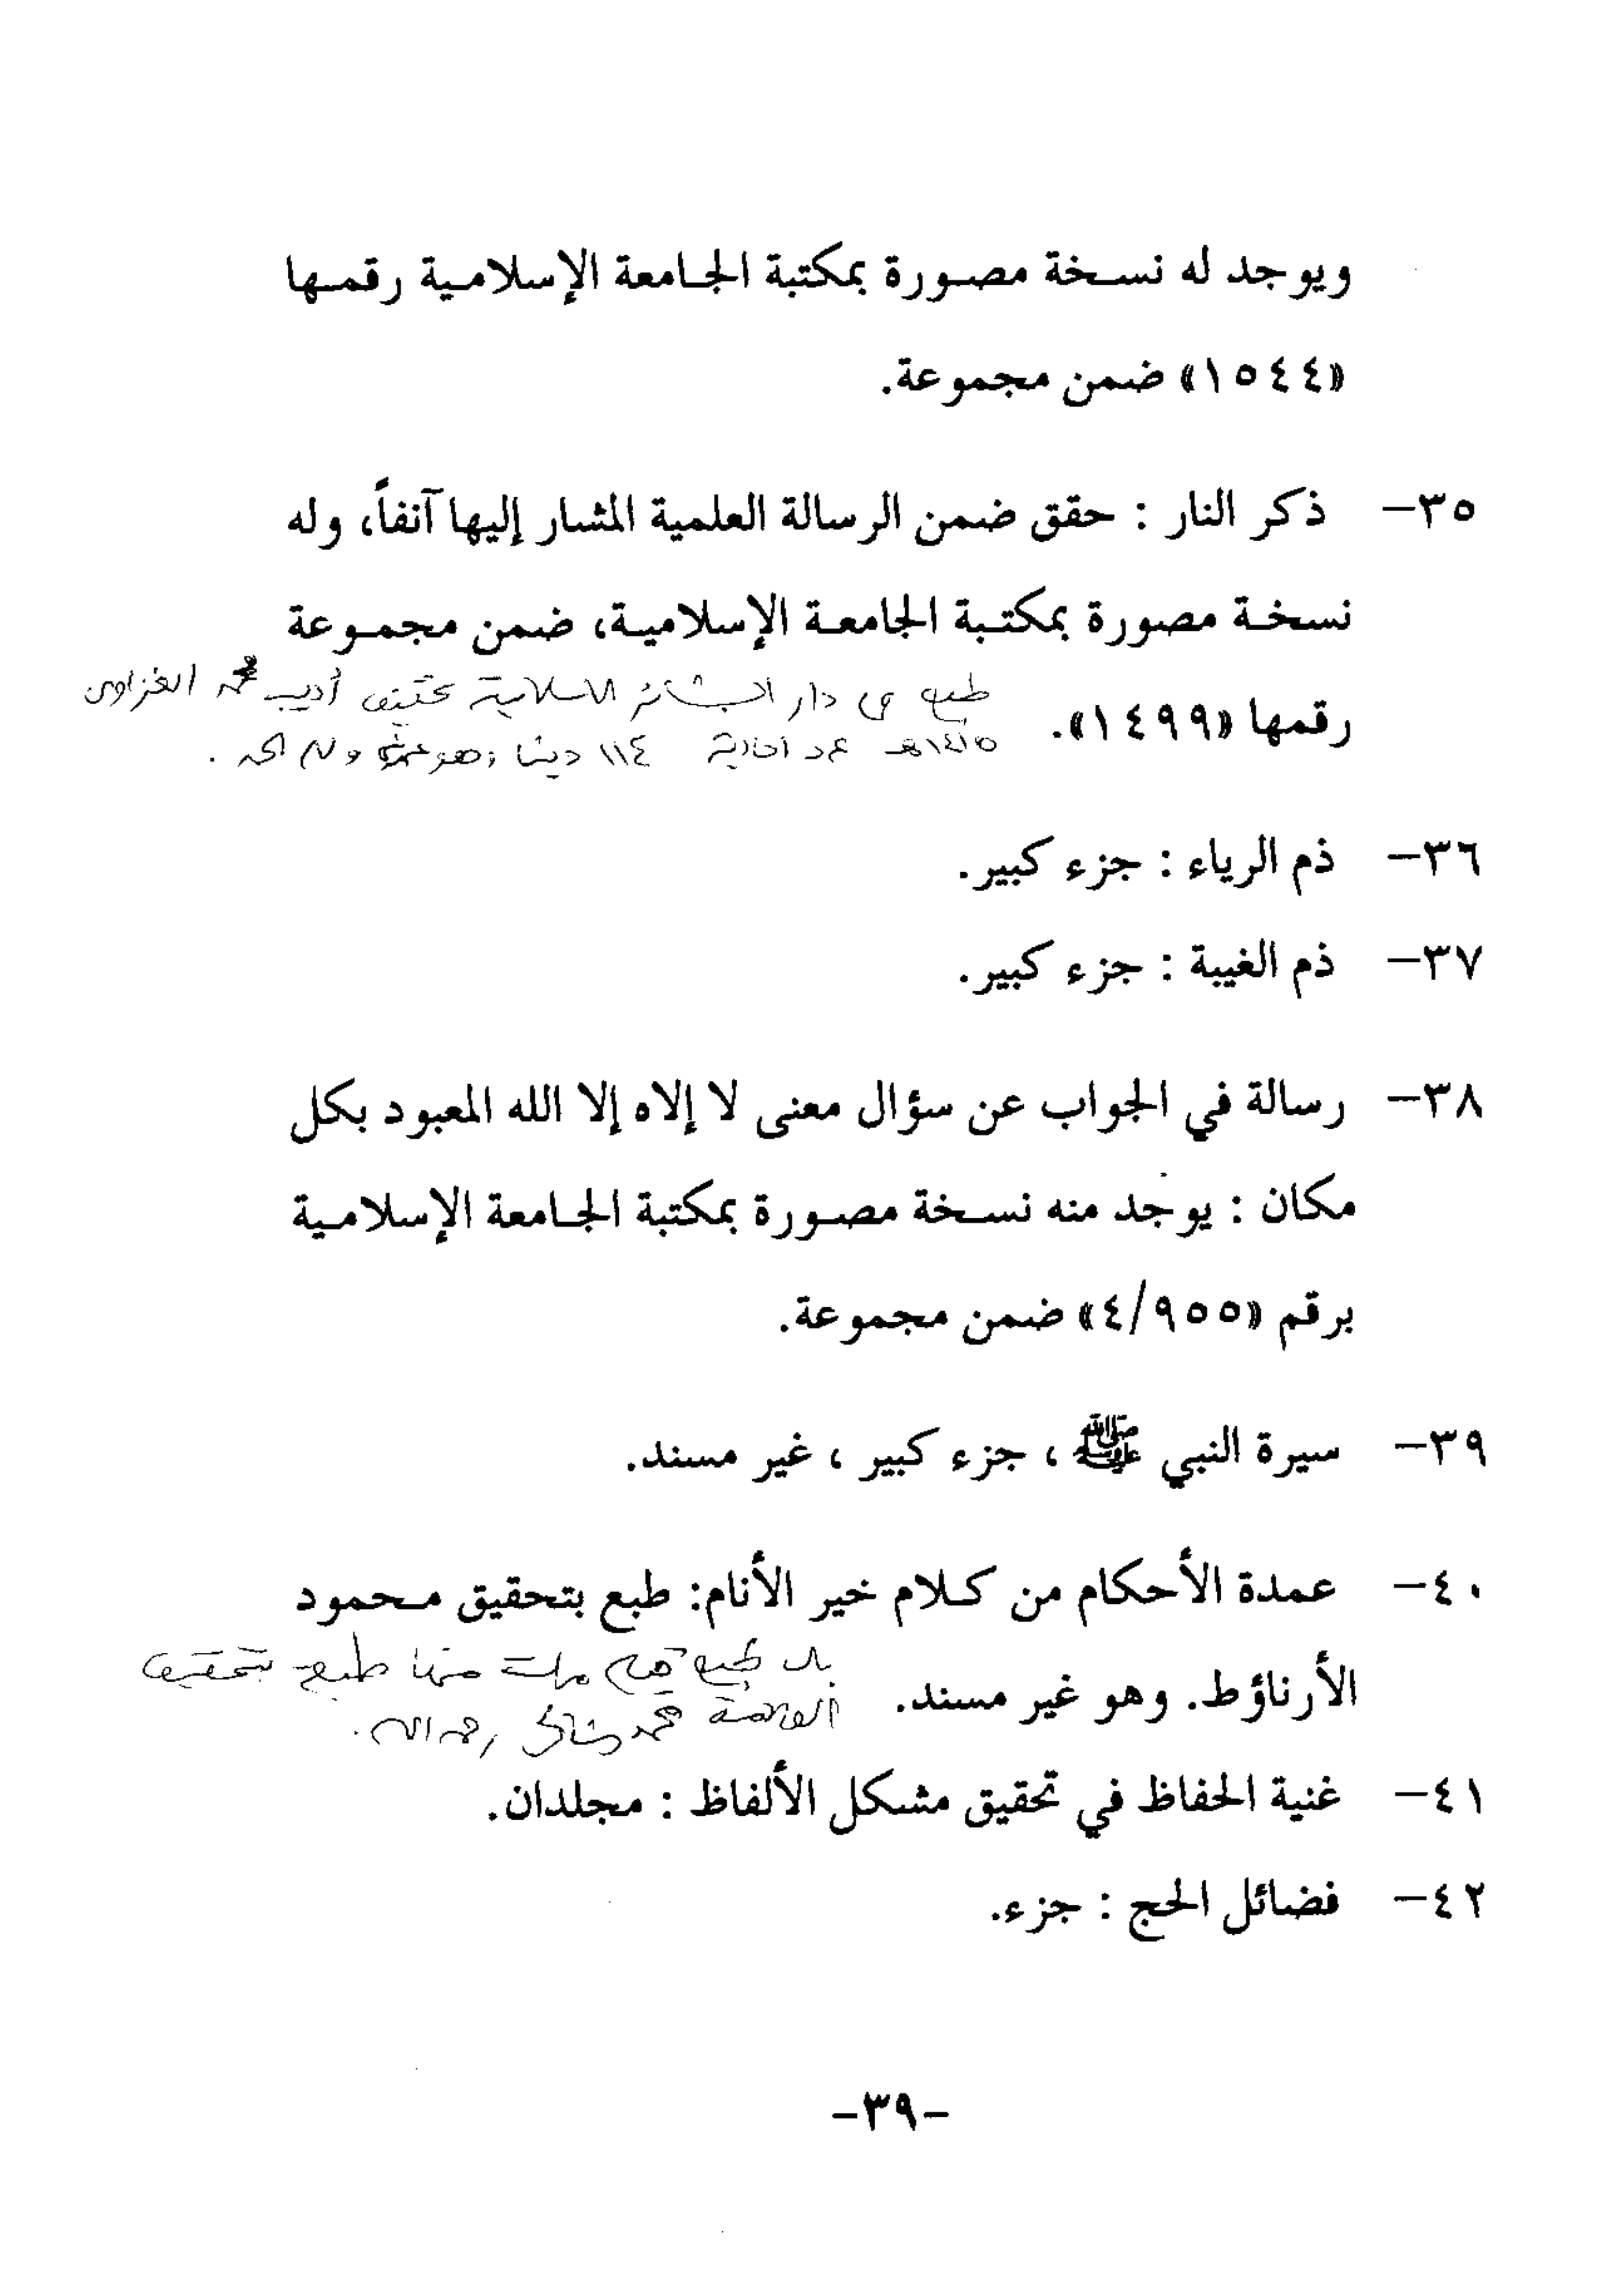 ويوجد له نسخة مصورة بمكتبة الجامعة الإسلامية رقمها
«١٥٤٤» ضمن مجموعة.
٣٥- ذكر النار : حقق ضمن الرسالة العلمية المشار إليها آنفاً، وله
نسخة مصورة بمكتبة الجامعة الإسلامية، ضمن مجموعة
طبع في دار البشائر الاسلامية تحقيق أديب محمد الغزاوي
رقمها «١٤٩٩».
١٤١٥هـ عدد أحاديثه ١١٤ حديثا وهو عندي ولله الحمد .
٣٦- ذم الرياء : جزء كبير.
٣٧- ذم الغيبة : جزء كبير.
٣٨- رسالة في الجواب عن سؤال معنى لا إلاه إلا الله المعبود بكل
مكان : يوجد منه نسخة مصورة بمكتبة الجامعة الإسلامية
برقم «٤/٩٥٥» ضمن مجموعة.
٣٩- سيرة النبي ﷺ ، جزء كبير ، غير مسند.
٤٠- عمدة الأحكام من كلام خير الأنام: طبع بتحقيق محمود
بل طبع مرات منها طبع بتحقيق
الأرناؤط. وهو غير مسند.
العلامة محمد شاكر رحمه الله.
٤١- غنية الحفاظ في تحقيق مشكل الألفاظ : مجلدان.
٤٢- فضائل الحج : جزء.
-٣٩-